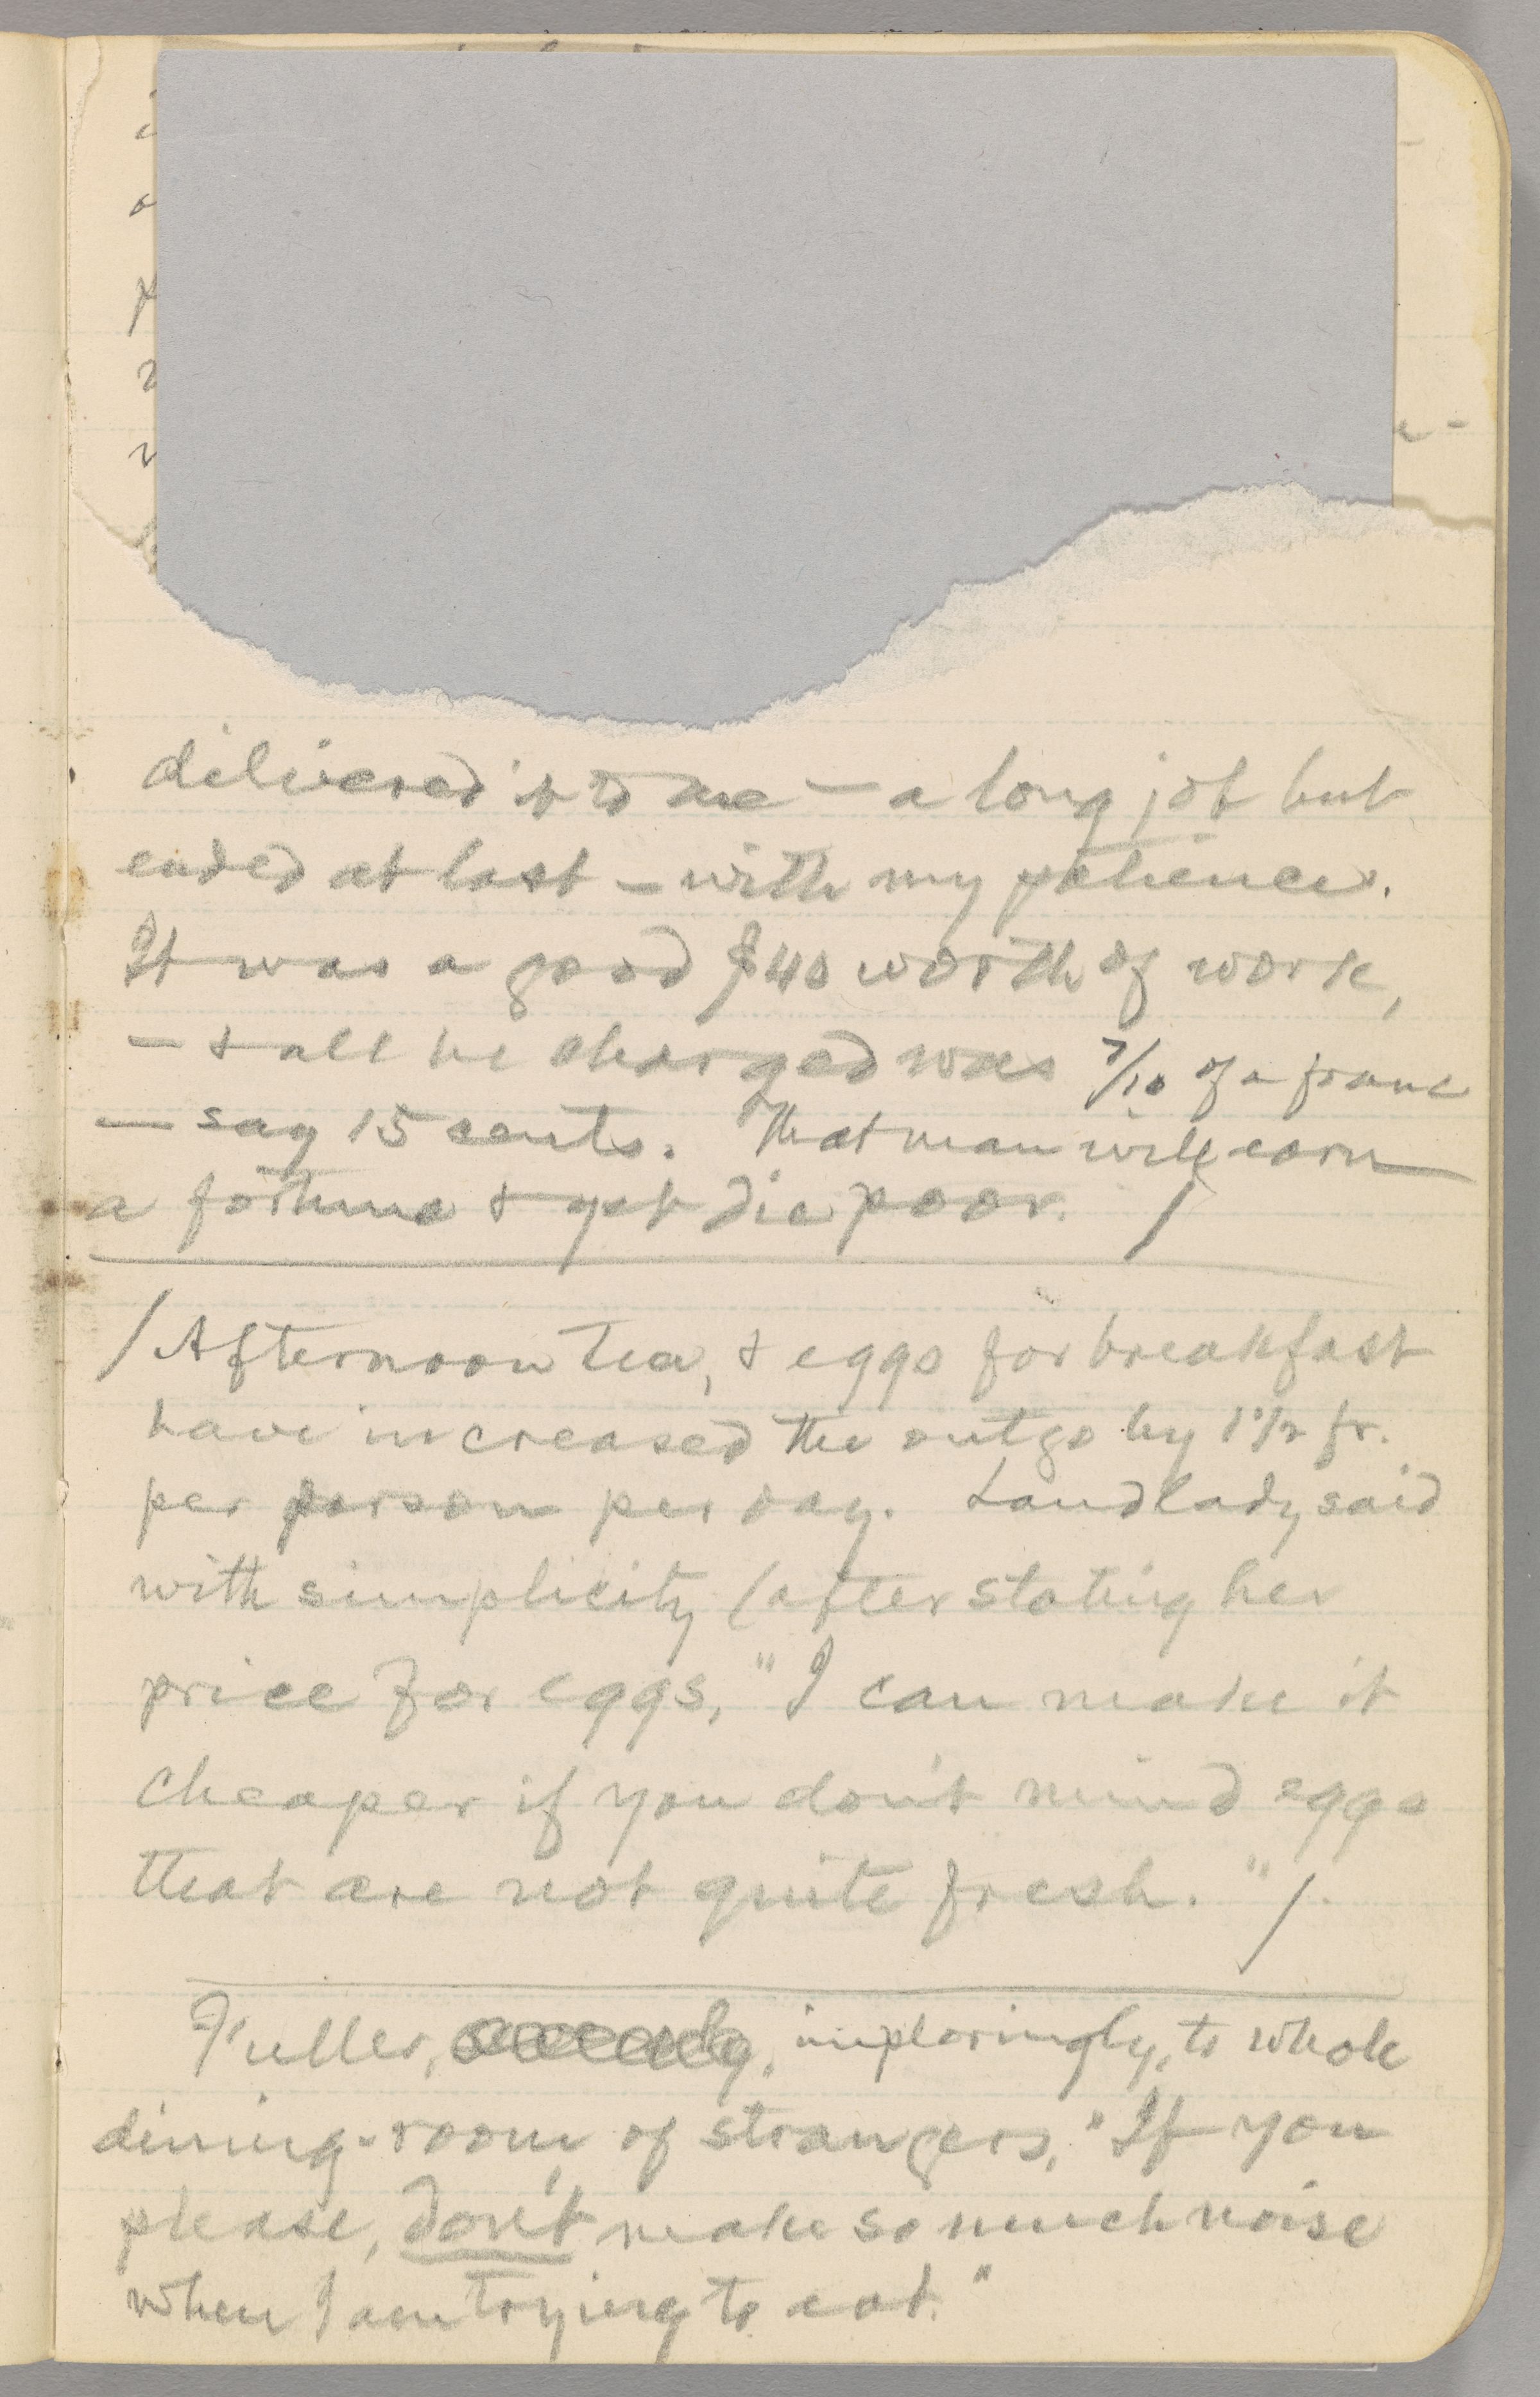 delivered it to me — a long job but
ended at last — with my patience.
It was a good $40 worth of work,
— & all he charged was 7/10 of a franc
— say 15 cents. That man will earn
a fortune & yet die poor. /
/ Afternoon tea, & eggs for breakfast
have increased the outgo by 1 1/2 fr.
per person per day. Landlady said
with simplicity (after stating her
price for eggs, "I can make it
cheaper if you don't mind eggs
that are not quite fresh." /.
Fuller, imploringly, to whole
dining-room of strangers, "If you
please, don't make so much noise
when I am trying to eat."